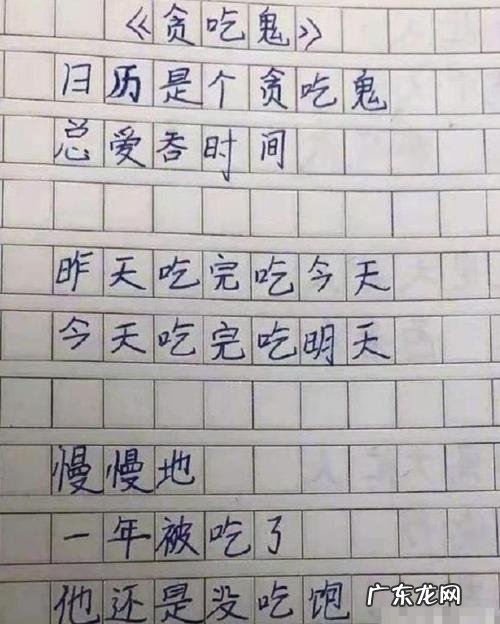 《贪吃鬼》
日历是个贪吃鬼
总爱吞时间
昨天吃完吃今天
今天吃完吃明天
慢慢地
一年被吃了
他还是没吃饱
广东龙网